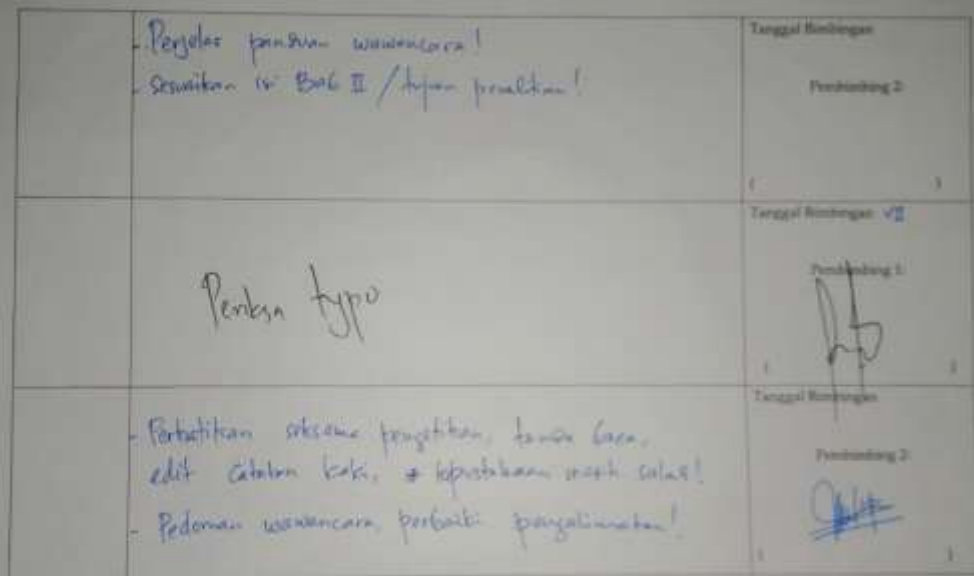 - Perjelas panduan wawancara!
- Sesuaikan isi Bab II / tujuan penelitian!
Tanggal Bimbingan
Pembimbing 2:
( )
Periksa typo
Tanggal Bimbingan VII
Pembimbing 1:
( )
- Perhatikan seksama pengetikan, tanda baca,
edit catatan kaki, kepustakaan masih salah!
- Pedoman wawancara, perbaiki pengalimatan!
Tanggal Bimbingan
Pembimbing 2:
( )